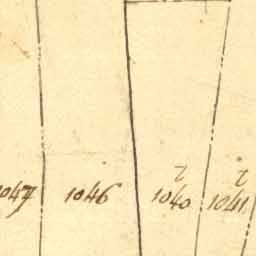 1047 1046 1040 1041